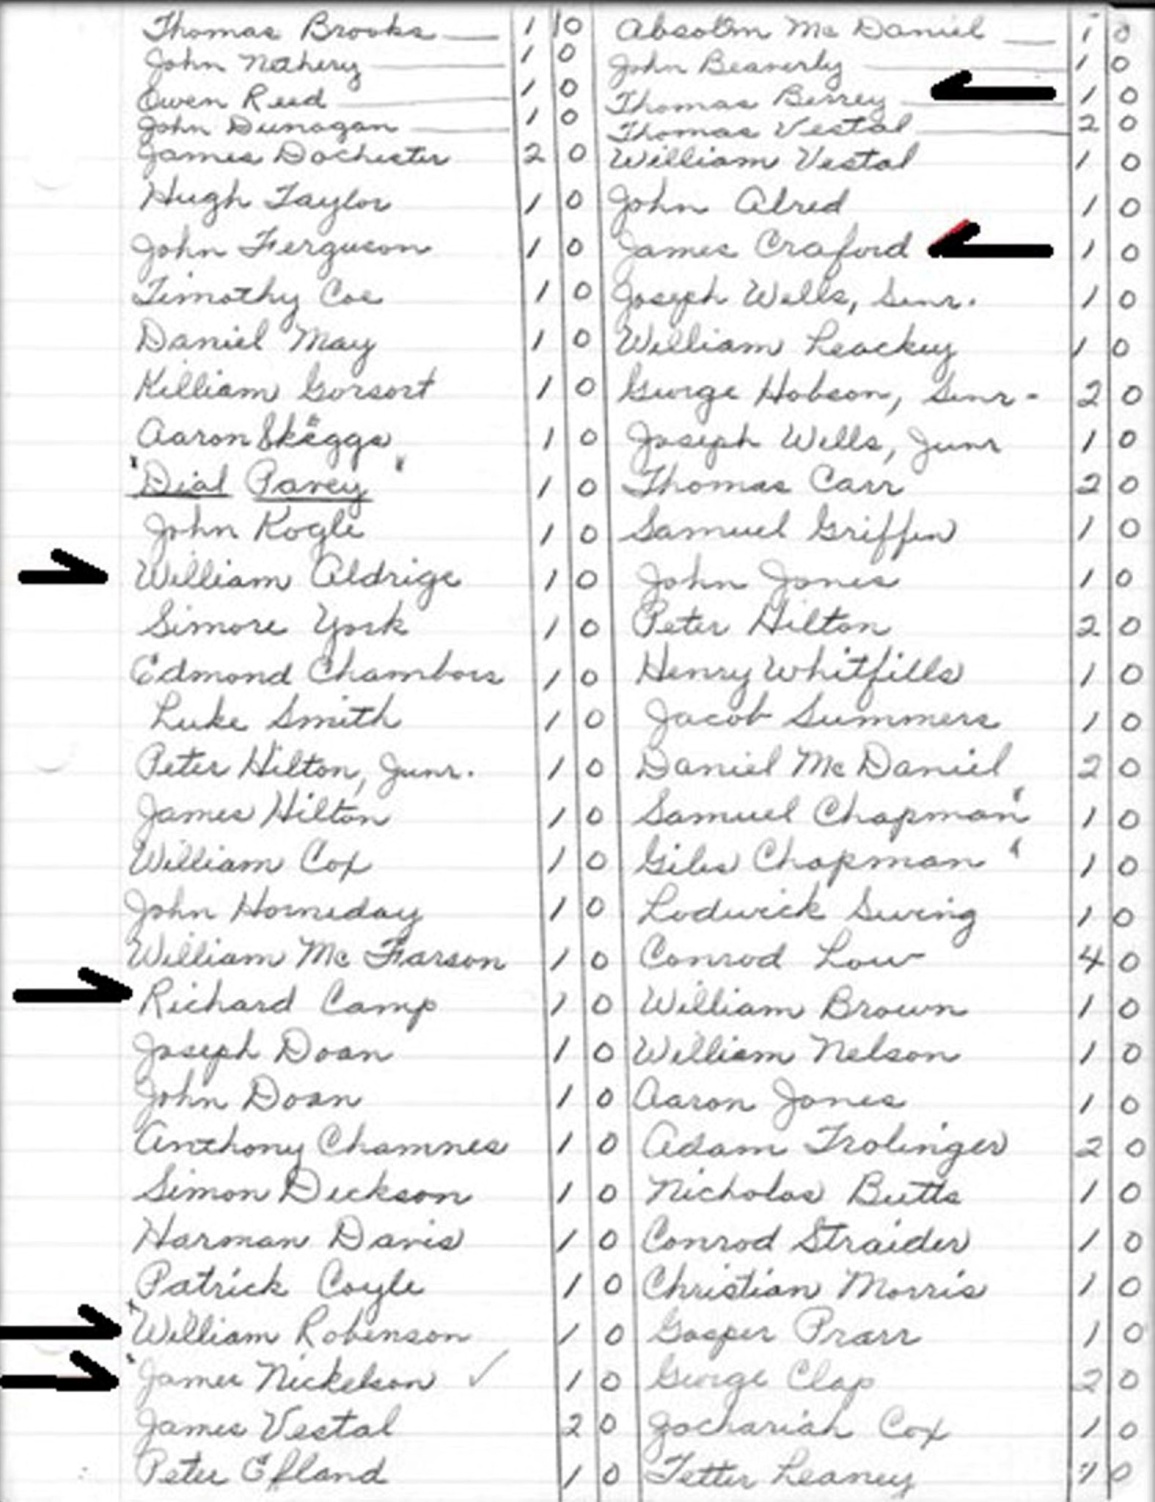 Thomas Brooks 1 0 Absolm Mc Daniel 1 0
John Nethery 1 0 John Beaverly 1 0
Owen Reed 1 0 Thomas Berrey 1 0
John Dunagan 1 0 Thomas Vestal 2 0
James Dochester 2 0 William Vestal 1 0
Hugh Taylor 1 0 John Alred 1 0
John Ferguson 1 0 James Craford 1 0
Timothy Coe 1 0 Joseph Wells, Senr. 1 0
Daniel May 1 0 William Leackey 1 0
Killiam Gorsort 1 0 George Hobson, Senr- 2 0
Aaron Skeggs 1 0 Joseph Wells, Junr 1 0
"Dial Pavey" 1 0 Thomas Carr 2 0
John Kogle 1 0 Samuel Griffin 1 0
William Aldrige 1 0 John Jones 1 0
Simore York 1 0 Peter Hilton 2 0
Edmond Chambors 1 0 Henry Whitfills 1 0
Luke Smith 1 0 Jacob Summers 1 0
Peter Hilton, Junr. 1 0 Daniel Mc Daniel 2 0
James Hilton 1 0 Samuel Chapman" 1 0
William Cox 1 0 Giles Chapman " 1 0
John Horneday 1 0 Lodwick Swing 1 0
William Mc Farson 1 0 Conrod Low 4 0
Richard Camp 1 0 William Brown 1 0
Joseph Doan 1 0 William Nelson 1 0
John Doan 1 0 Aaron Jones 1 0
Anthony Chamnes 1 0 Adam Trolinger 2 0
Simon Dickson 1 0 Nicholas Butts 1 0
Harman Davis 1 0 Conrod Straider 1 0
Patrick Coyle 1 0 Christian Morris 1 0
"William Robinson 1 0 Gosper Prarr 1 0
"James Nickelson ✓ 1 0 George Clap 2 0
James Vestal 2 0 Zachariah Cox 1 0
Peter Efland 1 0 Tetter Leaney 1 0